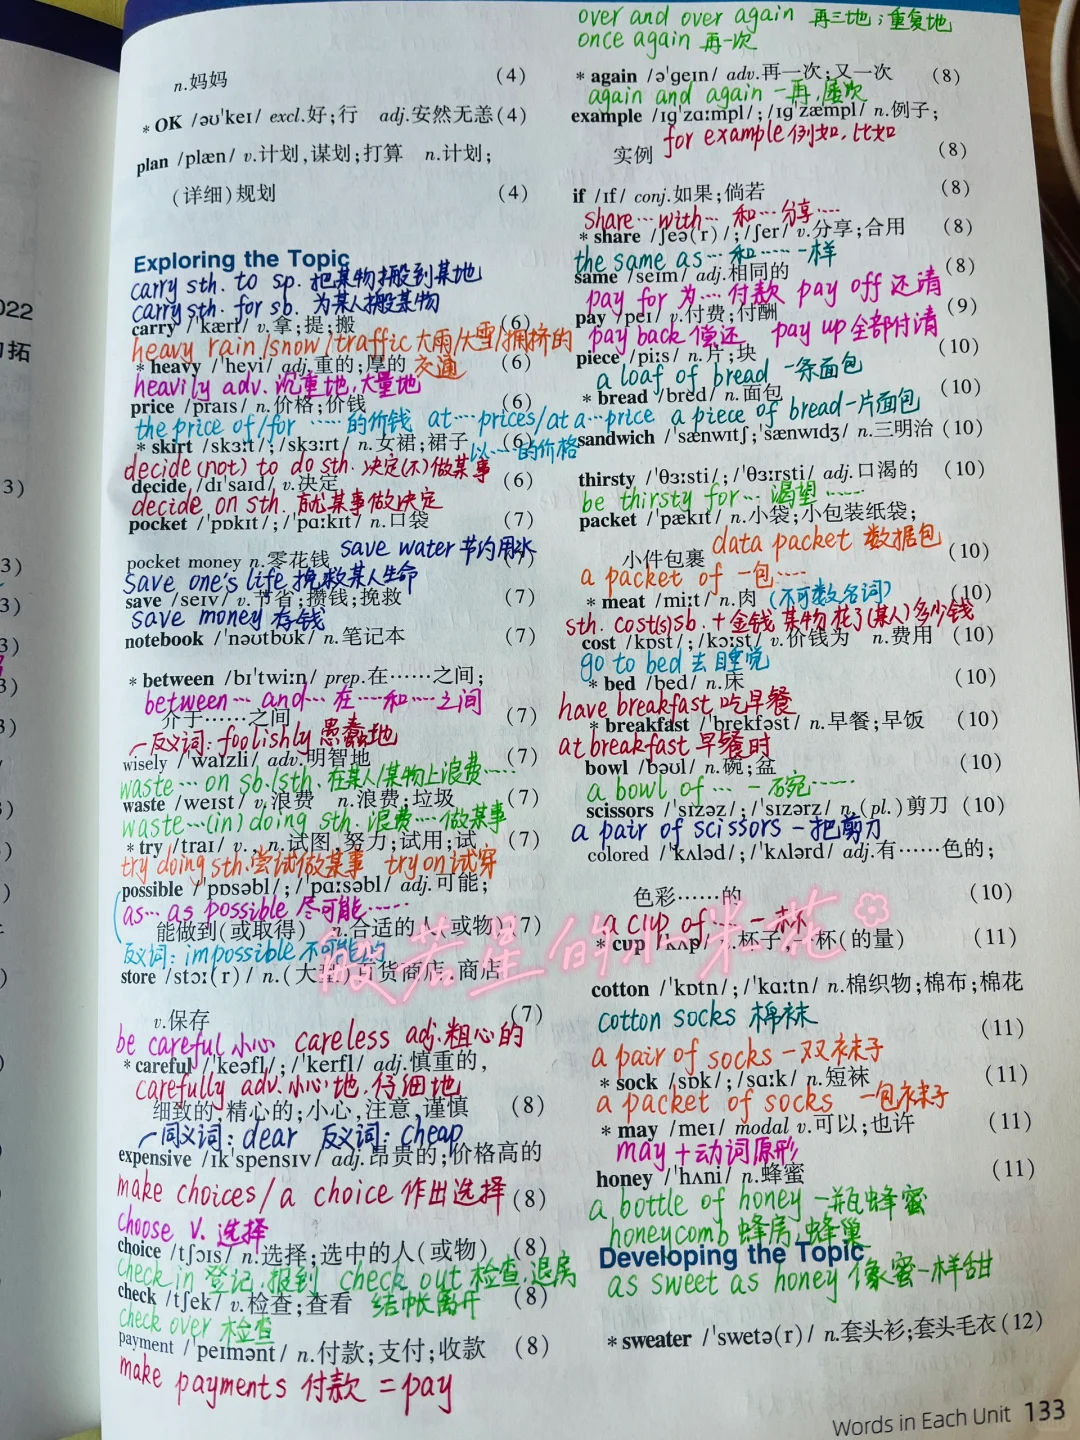 022
n.妈妈 (4)
*OK /əʊˈkeɪ/ excl.好;行 adj.安然无恙(4)
plan /plæn/ v.计划,谋划;打算 n.计划;
(详细)规划 (4)
Exploring the Topic
carry sth. to sp. 把某物搬到某地
carry sth. for sb. 为某人搬某物
carry /ˈkæri/ v.拿;提;搬 (6)
heavy rain/snow/traffic 大雨/大雪/拥挤的
*heavy /ˈhevi/ adj.重的;厚的 交通 (6)
heavily adv. 沉重地,大量地
price /praɪs/ n.价格;价钱 (6)
the price of/for ……的价钱 at…prices/at a…price
*skirt /skɜːt/;/skɜːrt/ n.女裙;裙子 (6) 以…的价格
decide (not) to do sth. 决定(不)做某事
decide /dɪˈsaɪd/ v.决定 (6)
decide on sth. 就某事做决定
pocket /ˈpɒkɪt/;/ˈpɑːkɪt/ n.口袋 (7)
pocket money n.零花钱 save water 节约用水
save one's life 挽救某人生命
save /seɪv/ v.节省;攒钱;挽救 (7)
save money 存钱
notebook /ˈnəʊtbʊk/ n.笔记本 (7)
*between /bɪˈtwiːn/ prep.在……之间;
between … and … 在……和……之间
介于……之间 (7)
反义词: foolishly 愚蠢地
wisely /ˈwaɪzli/ adv.明智地 (7)
waste … on sb./sth. 在某人/某物上浪费……
waste /weɪst/ v.浪费 n.浪费;垃圾 (7)
waste…(in) doing sth. 浪费…做某事
*try /traɪ/ v., n.试图,努力;试用;试 (7)
try doing sth. 尝试做某事 try on 试穿
possible /ˈpɒsəbl/;/ˈpɑːsəbl/ adj.可能;
as… as possible 尽可能……
能做到(或取得) n.合适的人(或物)(7)
反义词: impossible 不可能的
store /stɔː(r)/ n.(大型)百货商店,商店
v.保存 (7)
be careful 小心 careless adj.粗心的
*careful /ˈkeəfl/;/ˈkerfl/ adj.慎重的,
carefully adv.小心地,仔细地
细致的,精心的;小心,注意,谨慎 (8)
同义词: dear 反义词: cheap
expensive /ɪkˈspensɪv/ adj.昂贵的;价格高的
make choices/a choice 作出选择 (8)
choose v. 选择
choice /tʃɔɪs/ n.选择;选中的人(或物) (8)
check in 登记,报到 check out 检查,退房
check /tʃek/ v.检查;查看 结帐离开 (8)
check over 检查
payment /ˈpeɪmənt/ n.付款;支付;收款 (8)
make payments 付款 =pay
over and over again 再三地;重复地
once again 再一次
*again /əˈɡeɪn/ adv.再一次;又一次 (8)
again and again 一再,屡次
example /ɪɡˈzɑːmpl/;/ɪɡˈzæmpl/ n.例子;
实例 for example 例如,比如 (8)
if /ɪf/ conj.如果;倘若 (8)
share … with … 和…分享…
*share /ʃeə(r)/;/ʃer/ v.分享;合用 (8)
the same as … 和……一样
same /seɪm/ adj.相同的 (8)
pay for 为…付款 pay off 还清
pay /peɪ/ v.付费;付酬 (9)
pay back 偿还 pay up 全部付清
piece /piːs/ n.片;块 (10)
a loaf of bread 一条面包
*bread /bred/ n.面包 (10)
a piece of bread 一片面包
sandwich /ˈsænwɪtʃ;ˈsænwɪdʒ/ n.三明治 (10)
thirsty /ˈθɜːsti/;/ˈθɜːrsti/ adj.口渴的 (10)
be thirsty for … 渴望……
packet /ˈpækɪt/ n.小袋;小包装纸袋;
小件包裹 data packet 数据包 (10)
a packet of 一包……
*meat /miːt/ n.肉 (不可数名词) (10)
sth. cost(s) sb. + 金钱 某物花了(某人)多少钱
cost /kɒst/;/kɔːst/ v.价钱为 n.费用 (10)
go to bed 去睡觉
*bed /bed/ n.床 (10)
have breakfast 吃早餐
*breakfast /ˈbrekfəst/ n.早餐;早饭 (10)
at breakfast 早餐时
bowl /bəʊl/ n.碗;盆 (10)
a bowl of … 一碗……
scissors /ˈsɪzəz/;/ˈsɪzərz/ n.(pl.)剪刀 (10)
a pair of scissors 一把剪刀
colored /ˈkʌləd/;/ˈkʌlərd/ adj.有……色的;
色彩……的 (10)
a cup of … 一杯
*cup /kʌp/ n.杯子;一杯(的量) (11)
般若星的小米花
cotton /ˈkɒtn/;/ˈkɑːtn/ n.棉织物;棉布;棉花
cotton socks 棉袜 (11)
a pair of socks 一双袜子
*sock /sɒk/;/sɑːk/ n.短袜 (11)
a packet of socks 一包袜子
*may /meɪ/ modal v.可以;也许 (11)
may + 动词原形
honey /ˈhʌni/ n.蜂蜜 (11)
a bottle of honey 一瓶蜂蜜
honeycomb 蜂房,蜂巢
Developing the Topic
as sweet as honey 像蜜一样甜
*sweater /ˈswetə(r)/ n.套头衫;套头毛衣(12)
Words in Each Unit 133